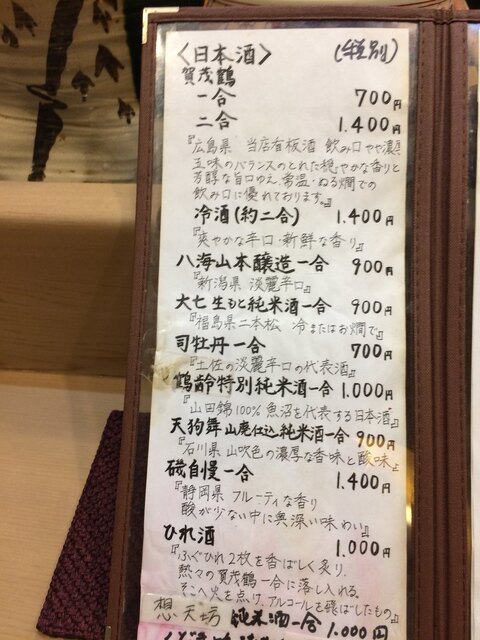 〈日本酒〉 (種別)
賀茂鶴
一合 700円
二合 1.400円
『広島県 当店看板酒 飲み口やや濃厚
五味のバランスのとれた穏やかな香りと
芳醇な旨口ゆえ、常温・ぬる燗での
飲み口に優れております。』
冷酒(約二合) 1.400円
『爽やかな辛口・新鮮な香り』
八海山本醸造一合 900円
『新潟県 淡麗辛口』
大七生もと純米酒一合 900円
『福島県二本松 冷またはお燗で』
司牡丹一合 700円
『土佐の淡麗辛口の代表酒』
鶴齢特別純米酒一合 1.000円
『山田錦100% 魚沼を代表する日本酒』
天狗舞山廃仕込純米酒一合 900円
『石川県 山吹色の濃厚な香味と酸味』
磯自慢一合 1.400円
『静岡県 フルーティな香り
酸が少ない中に奥深い味わい』
ひれ酒 1.000円
『ふぐひれ2枚を香ばしく炙り、
熱々の賀茂鶴一合に落し入れる。
そこへ火を点け、アルコールを飛ばしたもの』
想天坊 純米酒一合 1.000円